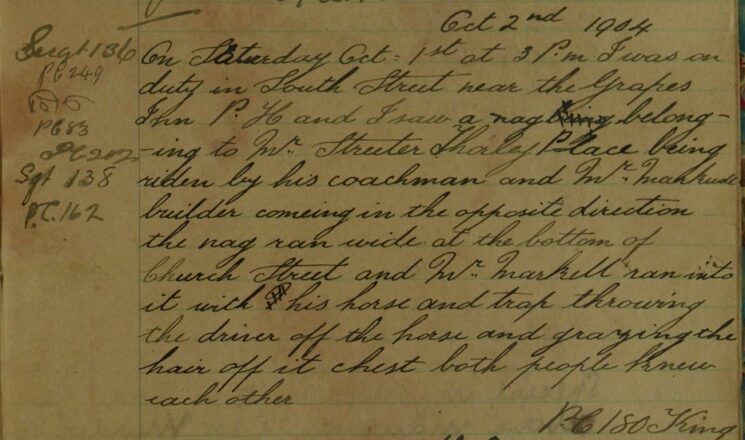 Oct 2nd 1904
Sergt 136
PC 249
PC 83
Sgt 138
P.C. 162
On Saturday Oct = 1st at 3 P.m I was on
duty in South Street near the Grapes
Inn P. H and I saw a nag belong-
-ing to Mr. Streeter Thorley Place being
riden by his coachman and Mr. Markwell
builder comeing in the opposite direction
the nag ran wide at the bottom of
Church Street and Mr. Markell ran into
it with his horse and trap throwing
the driver off the horse and grazing the
hair off it chest both people knew
each other
P.C 180 King